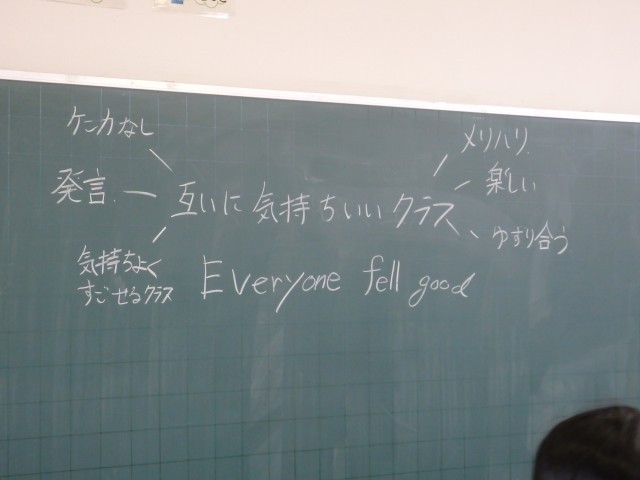 ケンカなし
メリハリ.
発言.
互いに気持ちいいクラス
楽しい
ゆずり合う
気持ちよく
すごせるクラス
Everyone fell good